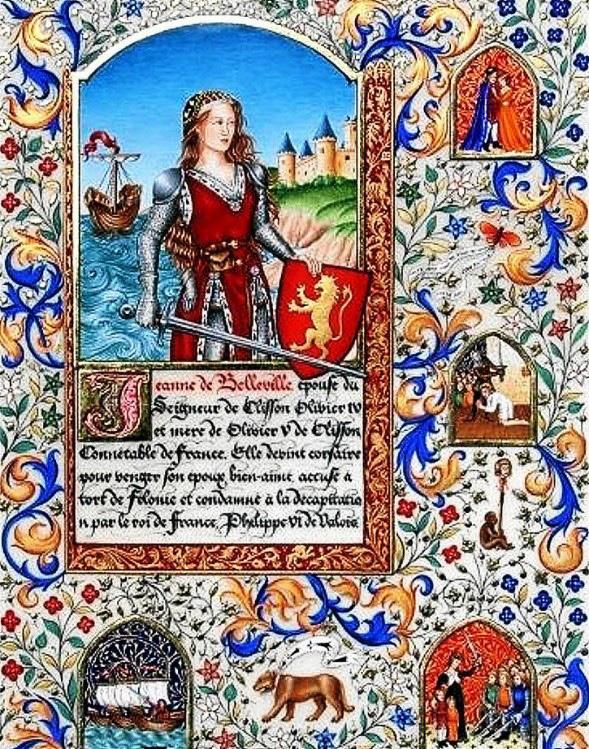 Jeanne de Belleville epouse du
Seigneur de Clisson Olivier IV
et mere de Olivier V de Clisson
Connétable de France. Elle devint corsaire
pour venger son epoux bien-aimé, accusé à
tort de Felonie et condamné à la decapitatio
n par le roi de France, Philippe VI de Valois.